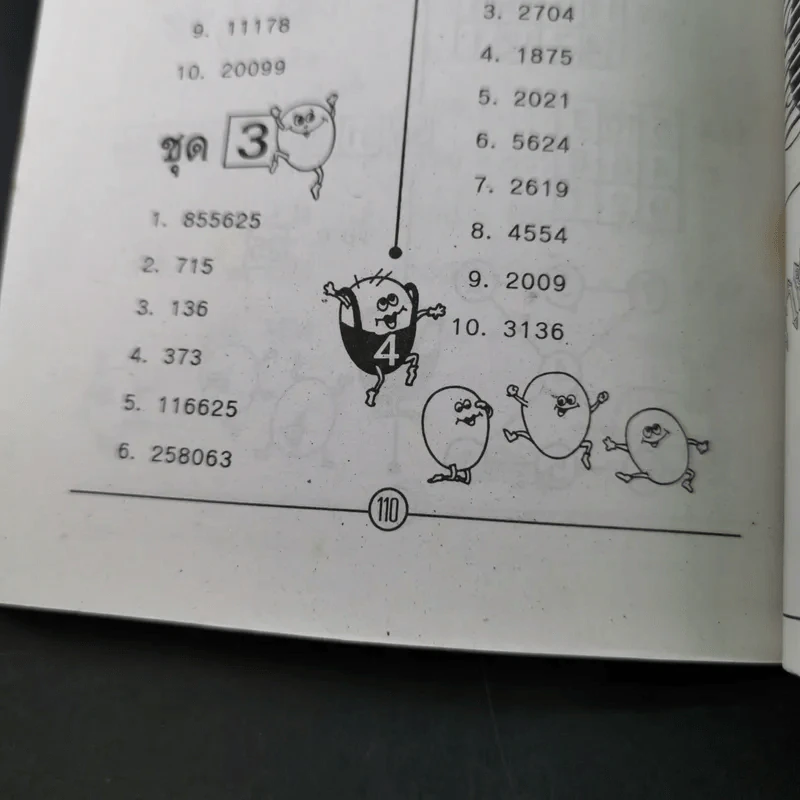 9. 11178
10. 20099
ชุด 3
1. 855625
2. 715
3. 136
4. 373
5. 116625
6. 258063
3. 2704
4. 1875
5. 2021
6. 5624
7. 2619
8. 4554
9. 2009
10. 3136
4
110